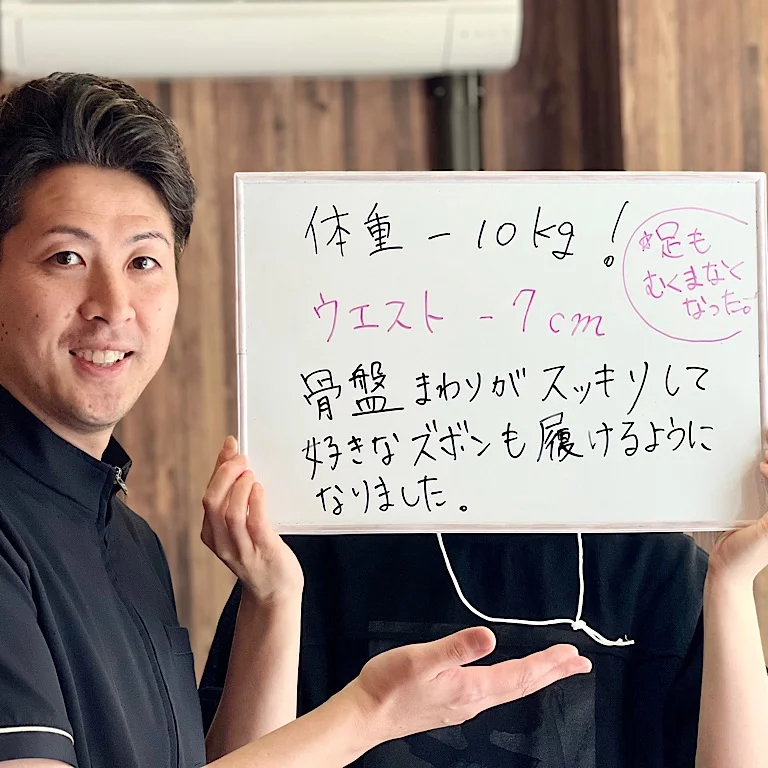 体重 -10kg!
ウエスト -7cm
*足も
むくまなく
なった。
骨盤まわりがスッキリして
好きなズボンも履けるように
なりました。